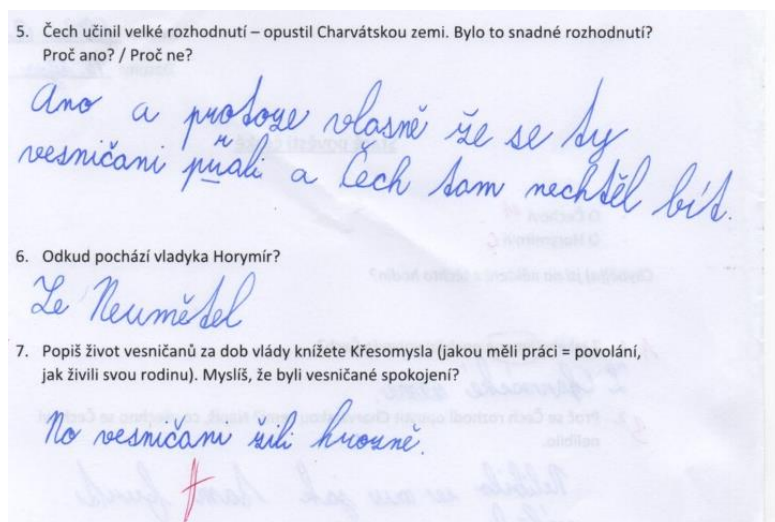 5. Čech učinil velké rozhodnutí – opustil Charvátskou zemi. Bylo to snadné rozhodnutí?
Proč ano? / Proč ne?
Ano a protoze vlasně že se ty
vesničani přali a Čech tam nechtěl bít.
6. Odkud pochází vladyka Horymír?
Ze Neumětel
7. Popiš život vesničanů za dob vlády knížete Křesomysla (jakou měli práci = povolání,
jak živili svou rodinu). Myslíš, že byli vesničané spokojení?
No vesničani žili hrozně.